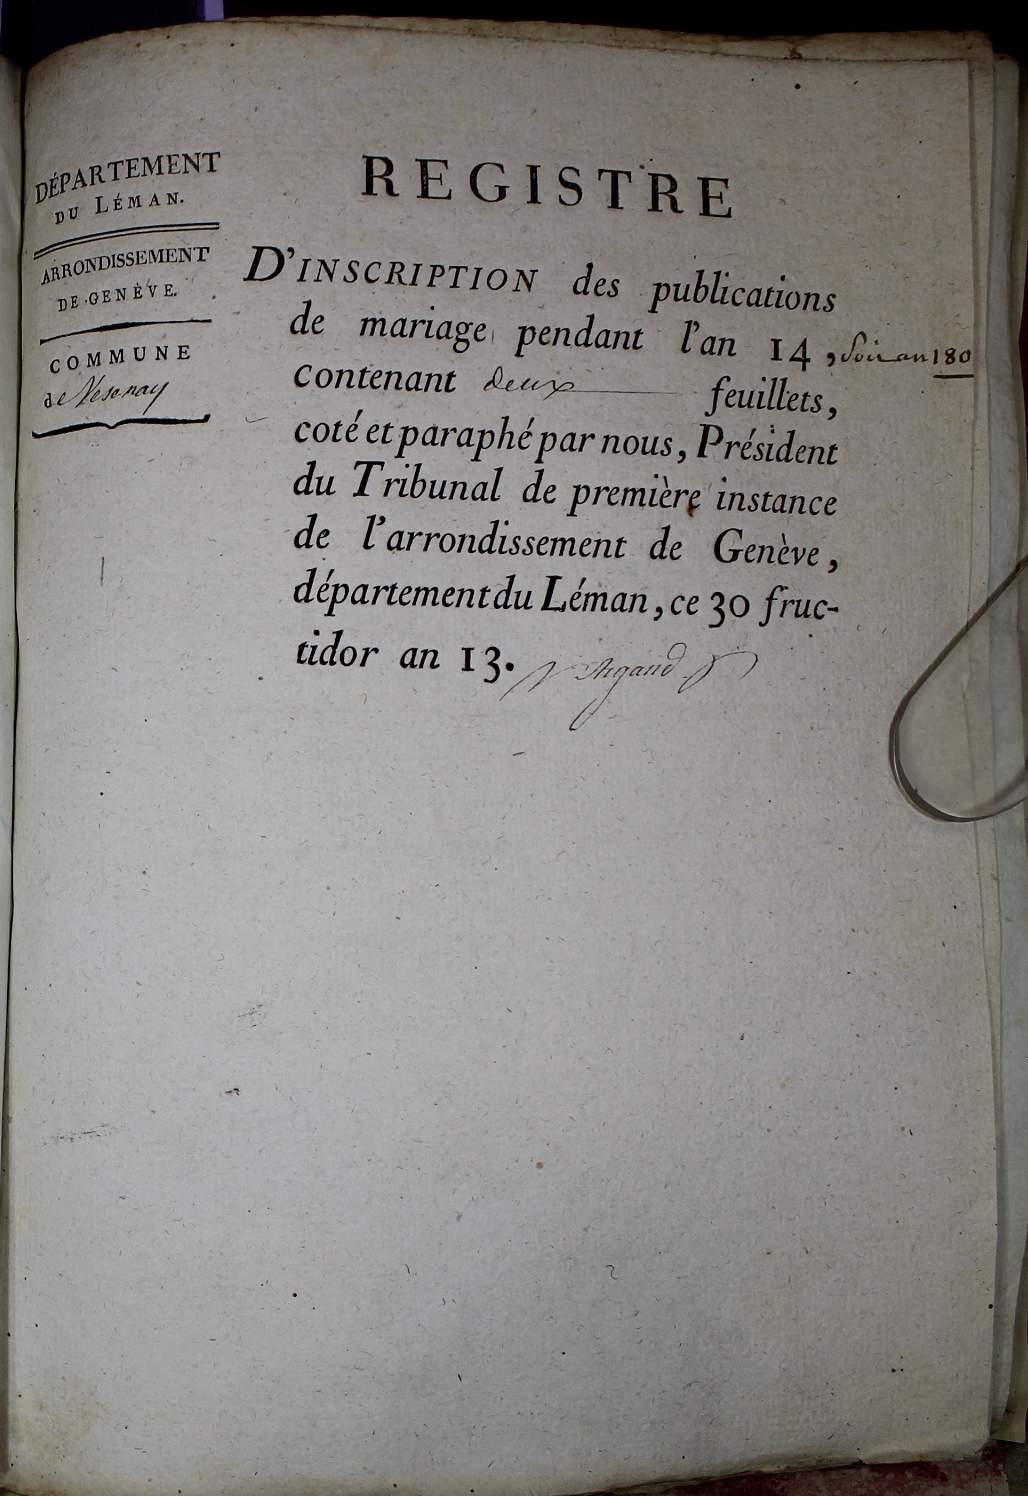 DÉPARTEMENT
DU LÉMAN.
ARRONDISSEMENT
DE GENÈVE.
COMMUNE
de Vesenay
REGISTRE
D'INSCRIPTION des publications
de mariage pendant l'an 14, soit an 180
contenant deux feuillets,
coté et paraphé par nous, Président
du Tribunal de première instance
de l'arrondissement de Genève,
département du Léman, ce 30 fruc-
tidor an 13. Argand